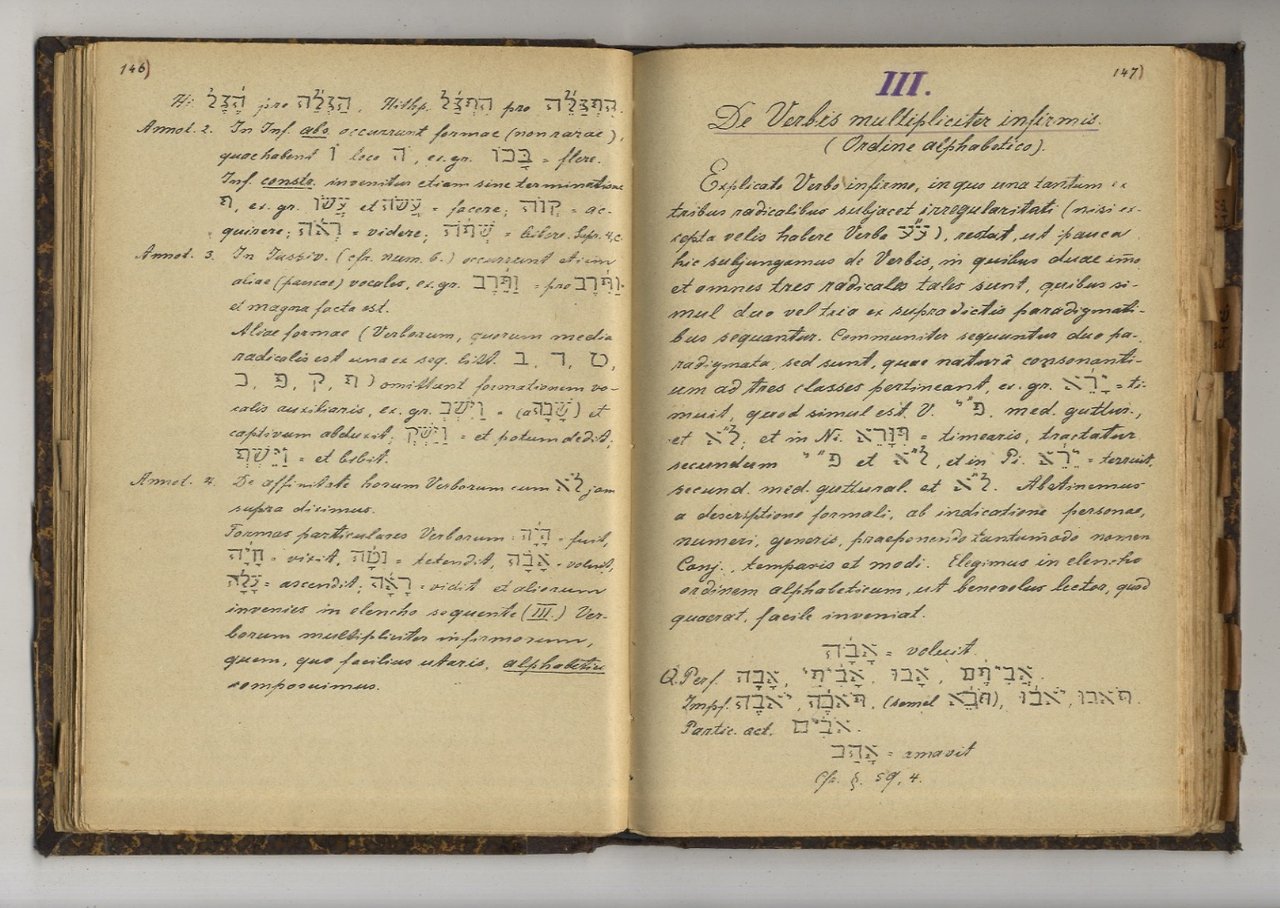 146)
Hi. הֶגֶל pro הַגְלֵה, Hithp. הִתְגַּל pro הִתְגַּלֵּה.
Annot. 2. In Inf. abs. occurrunt formae (non rarae),
quae habent וֹ loco הֹ, ex. gr. בָּכוֹ = flere.
Inf. constr. invenitur etiam sine terminatione
ת, ex. gr. עֲשׂוֹ et עֲשֹׂה = facere; קְנֹה = ac-
quirere; רְאֹה = videre; שְׁתֹה = bibere. Supr. 4, c.
Annot. 3. In Jussiv. (cfr. num. 6.) occurrunt etiam
aliae (paucae) vocales, ex. gr. וַתֵּרֶב = pro וַתִּרֶב.
et magna facta est.
Aliae formae (Verborum, quorum media
radicalis est una ex seq. litt. ב, ד, ט,
כ, פ, ק, ת) omittunt formationem vo-
calis auxiliaris, ex. gr. וַיִּשְׁבְּ = (a שָׁבָה) et
captivum abduxit; וַיַּשְׁקְ = et potum dedit;
וַיֵּשְׁתְּ = et bibit.
Annot. 4. De affinitate horum Verborum cum ל״א jam
supra diximus.
Formas particulares Verborum: הָיָה = fuit,
חָיָה = vixit, נָטָה = tetendit, אָבָה = voluit,
עָלָה = ascendit; רָאָה = vidit et aliorum
invenies in elencho sequente (III.) Ver-
borum multipliciter infirmorum,
quem, quo facilius utaris, alphabetice
composuimus.
147)
III.
De Verbis multipliciter infirmis.
(Ordine alphabetico).
Explicato Verbo infirmo, in quo una tantum ex
tribus radicalibus subjacet irregularitati (nisi ex-
cepta velis habere Verba ע״ע), restat, ut pauca
hic subjungamus de Verbis, in quibus duae immo
et omnes tres radicales tales sunt, quibus si-
mul duo vel tria ex supradictis paradigmati-
bus sequantur. Communiter sequuntur duo pa-
radigmata, sed sunt, quae naturâ consonanti-
um ad tres classes pertineant, ex. gr. יָרֵא = ti-
muit, quod simul est V. פ״י, med. guttur.,
et ל״א; et in Ni. תִּוָּרֵא = timearis, tractatur
secundum פ״י et ל״א, et in Pi. יֵרֵא = terruit,
secund. med. guttural. et ל״א. Abstinemus
a descriptione formali, ab indicatione personae,
numeri, generis, praeponendo tantummodo nomen
Conj., temporis et modi. Elegimus in elencho
ordinem alphabeticum, ut benevolus lector, quod
quaerat, facile inveniat.
אָבָה = voluit.
Q. Perf. אָבָה, אָבִיתִי, אָבוּ, אֲבִיתֶם.
Impf. יֹאבֶה, תֹּאבֶה, (semel תֹּבֵא), יֹאבוּ, תֹּאבוּ.
Partic. act. אֹבִים.
אָהַב = amavit
Cfr. §. 59, 4.